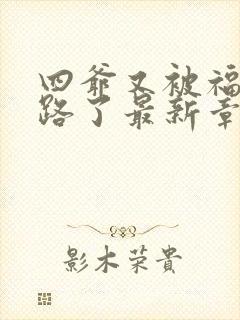 四爷又被福
路了最新章
影木荣貴